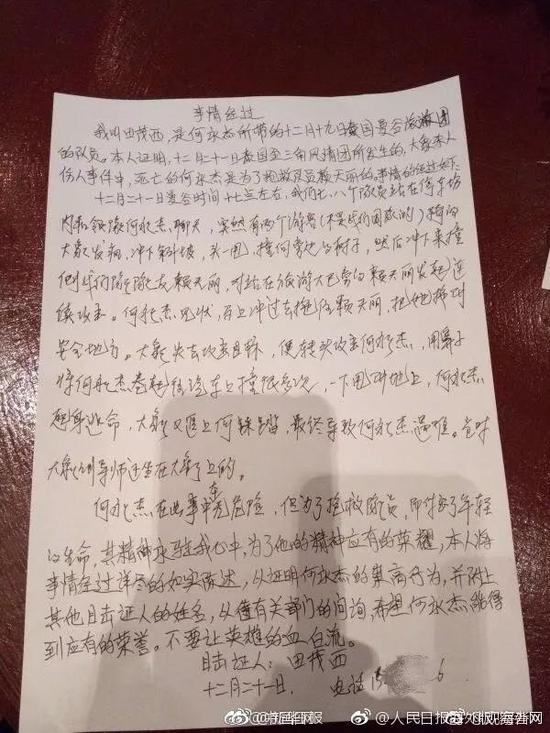 事情经过
我叫田茂西,是何永杰所带的十二月十九日泰国曼谷旅游团
的队员。本人证明,十二月二十一日泰国金三角风情园所发生的,大象杀人
伤人事件中,死亡的何永杰是为了抢救队员赖天丽的。事情的经过如下。
十二月二十一日曼谷时间十七点左右,我们七、八个队员站在停车场
内和领队何永杰聊天,突然有两个游客(不是我们团队的)骑的
大象发狂,冲下斜坡,头一甩,撞向旁边的树子,然后冲下来撞
倒我们队友赖天丽,对站在旅游大巴旁的赖天丽发起连
续攻击。何永杰见状,马上冲过去抱住赖天丽,把她推到
安全地方。大象失去攻击目标,便转头攻击何永杰,用鼻子
将何永杰卷起往汽车上撞很多次,一下甩到地上,何永杰
起身逃命,大象又追上何踩踏,最终导致何永杰遇难。当时
大象训导师还坐在大象上的。
何永杰在此事中危险,但为了抢救队员,即付出了年轻
的生命,其精神永驻我心中,为了他的精神应有的荣耀,本人将
事情经过详尽的如实陈述,以证明何永杰的崇高行为,并附上
其他目击证人的姓名,以备有关部门的问询,希望何永杰能得
到应有的荣誉。不要让英雄的血白流。
目击证人:田茂西
十二月二十一日. 电话 6
@人民日报海外版观察者网